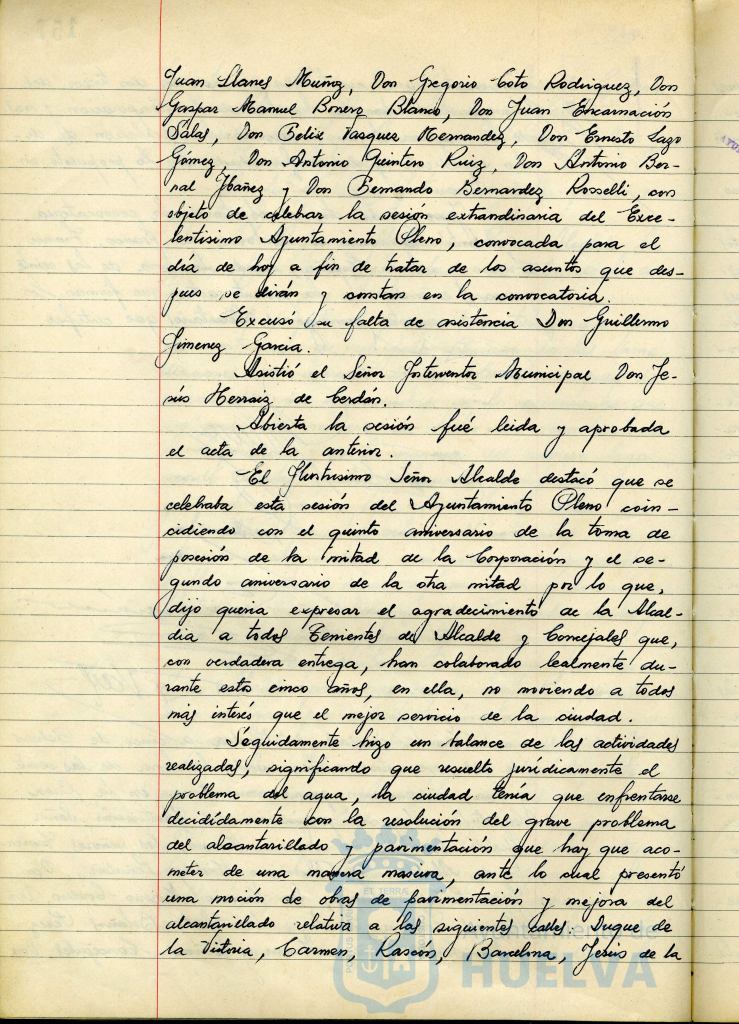 Juan Llanes Muñoz, Don Gregorio Coto Rodriguez, Don
Gaspar Manuel Bonero Blanco, Don Juan Encarnación
Salas, Don Felix Vasquez Hernandez, Don Ernesto Lazo
Gómez, Don Antonio Quintero Ruiz, Don Antonio Ber-
nal Ibañez y Don Fernando Bernardez Rosselli, con
objeto de celebrar la sesión extrandinaria del Exce-
lentisimo Ayuntamiento Pleno, convocada para el
día de hoy a fin de tratar de los asuntos que des-
pues se dirán y constan en la convocatoria.
Excusó su falta de asistencia Don Guillermo
Jimenez Garcia.
Asistió el Señor Interventor Municipal Don Je-
sús Herraiz de Cerdán.
Abierta la sesión fué leida y aprobada
el acta de la anterior.
El Ilustrisimo Señor Alcalde destacó que se
celebraba esta sesión del Ayuntamiento Pleno coin-
cidiendo con el quinto aniversario de la toma de
posesión de la mitad de la Corporación y el se-
gundo aniversario de la otra mitad por lo que,
dijo queria expresar el agradecimiento de la Alcal-
dia a todos Tenientes de Alcalde y Concejales que,
con verdadera entrega, han colaborado lealmente du-
rante estos cinco años, en ella, no moviendo a todos
más interés que el mejor servicio de la ciudad.
Seguidamente hizo un balance de las actividades
realizadas, significando que resuelto jurídicamente el
problema del agua, la ciudad tenía que enfrentarse
decididamente con la resolución del grave problema
del alcantarillado y pavimentación que hay que aco-
meter de una manera masiva, ante lo cual presentó
una moción de obras de pavimentación y mejora del
alcantarillado relativa a las siguientes calles: Duque de
la Victoria, Carmen, Rascón, Barcelona, Jesús de la
HUELVA